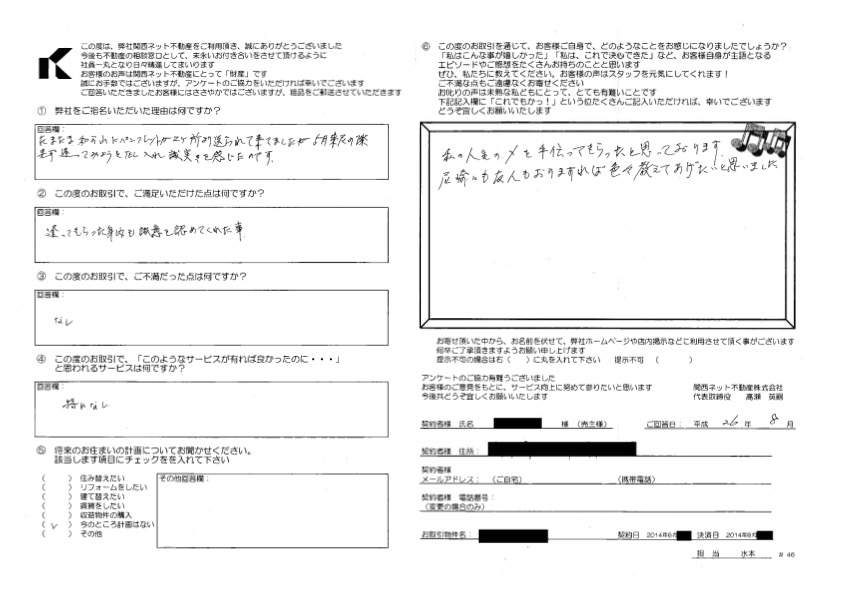 この度は、弊社関西ネット不動産をご利用頂き、誠にありがとうございました
今後も不動産の相談窓口として、末永いお付き合いをさせて頂けるように
社員一丸となり日々精進してまいります
お客様のお声は関西ネット不動産にとって「財産」です
誠にお手数ではございますが、アンケートのご協力をいただければ幸いでございます
ご回答いただきましたお客様にはささやかではございますが、粗品をご郵送させていただきます
① 弊社をご指名いただいた理由は何ですか?
回答欄:
たまたま
パンフレットが2ヶ所より送られて来てましたが5月
逢ってみようと 入れ 誠実さを感じたのです。
② この度のお取引で、ご満足いただけた点は何ですか?
回答欄:
逢ってもらった 誠意を認めてくれた事
③ この度のお取引で、ご不満だった点は何ですか?
回答欄:
なし
④ この度のお取引で、「このようなサービスが有れば良かったのに・・・」
と思われるサービスは何ですか?
回答欄:
特になし
⑤ 将来のお住まいの計画についてお聞かせください。
該当します項目にチェックをを入れて下さい
( ) 住み替えたい
( ) リフォームをしたい
( ) 建て替えたい
( ) 賃貸をしたい
( ) 収益物件の購入
( ✓ ) 今のところ計画はない
( ) その他
その他回答欄:
⑥ この度のお取引を通じて、お客様ご自身で、どのようなことをお感じになりましたでしょうか?
「私はこんな事が嬉しかった」「私は、これで決心できた」など、お客様自身が主語となる
エピソードやご感想をたくさんお持ちのことと思います
ぜひ、私たちに教えてください。お客様の声はスタッフを元気にしてくれます!
ご不満な点もご遠慮なくお寄せください
お叱りの声は未熟な私どもにとって、とても有難いことです
下記記入欄に「これでもかっ!」という位たくさんご記入いただければ、幸いでございます
どうぞ宜しくお願いいたします
私の人生の〆を手伝ってもらったと思っております。
尼崎にも友人もおりますれば色々教えてあげたいと思いました
お寄せ頂いた中から、お名前を伏せて、弊社ホームページや店内掲示などに利用させて頂く事がございます
何卒ご了承頂きますようお願い申し上げます
提示不可の場合は右( )に丸を入れて下さい 提示不可 ( )
アンケートのご協力有難うございました
お客様のご意見をもとに、サービス向上に努めて参りたいと思います
今後共どうぞ宜しくお願いいたします
関西ネット不動産株式会社
代表取締役 高瀬 英嗣
契約者様 氏名 様 (売主様) ご回答日: 平成 26 年 8 月
契約者様 住所:
契約者様
メールアドレス: (ご自宅) (携帯電話)
契約者様 電話番号:
(変更の場合のみ)
お取引物件名: 契約日 2014年6月 決済日 2014年8月
担当 水本 #46